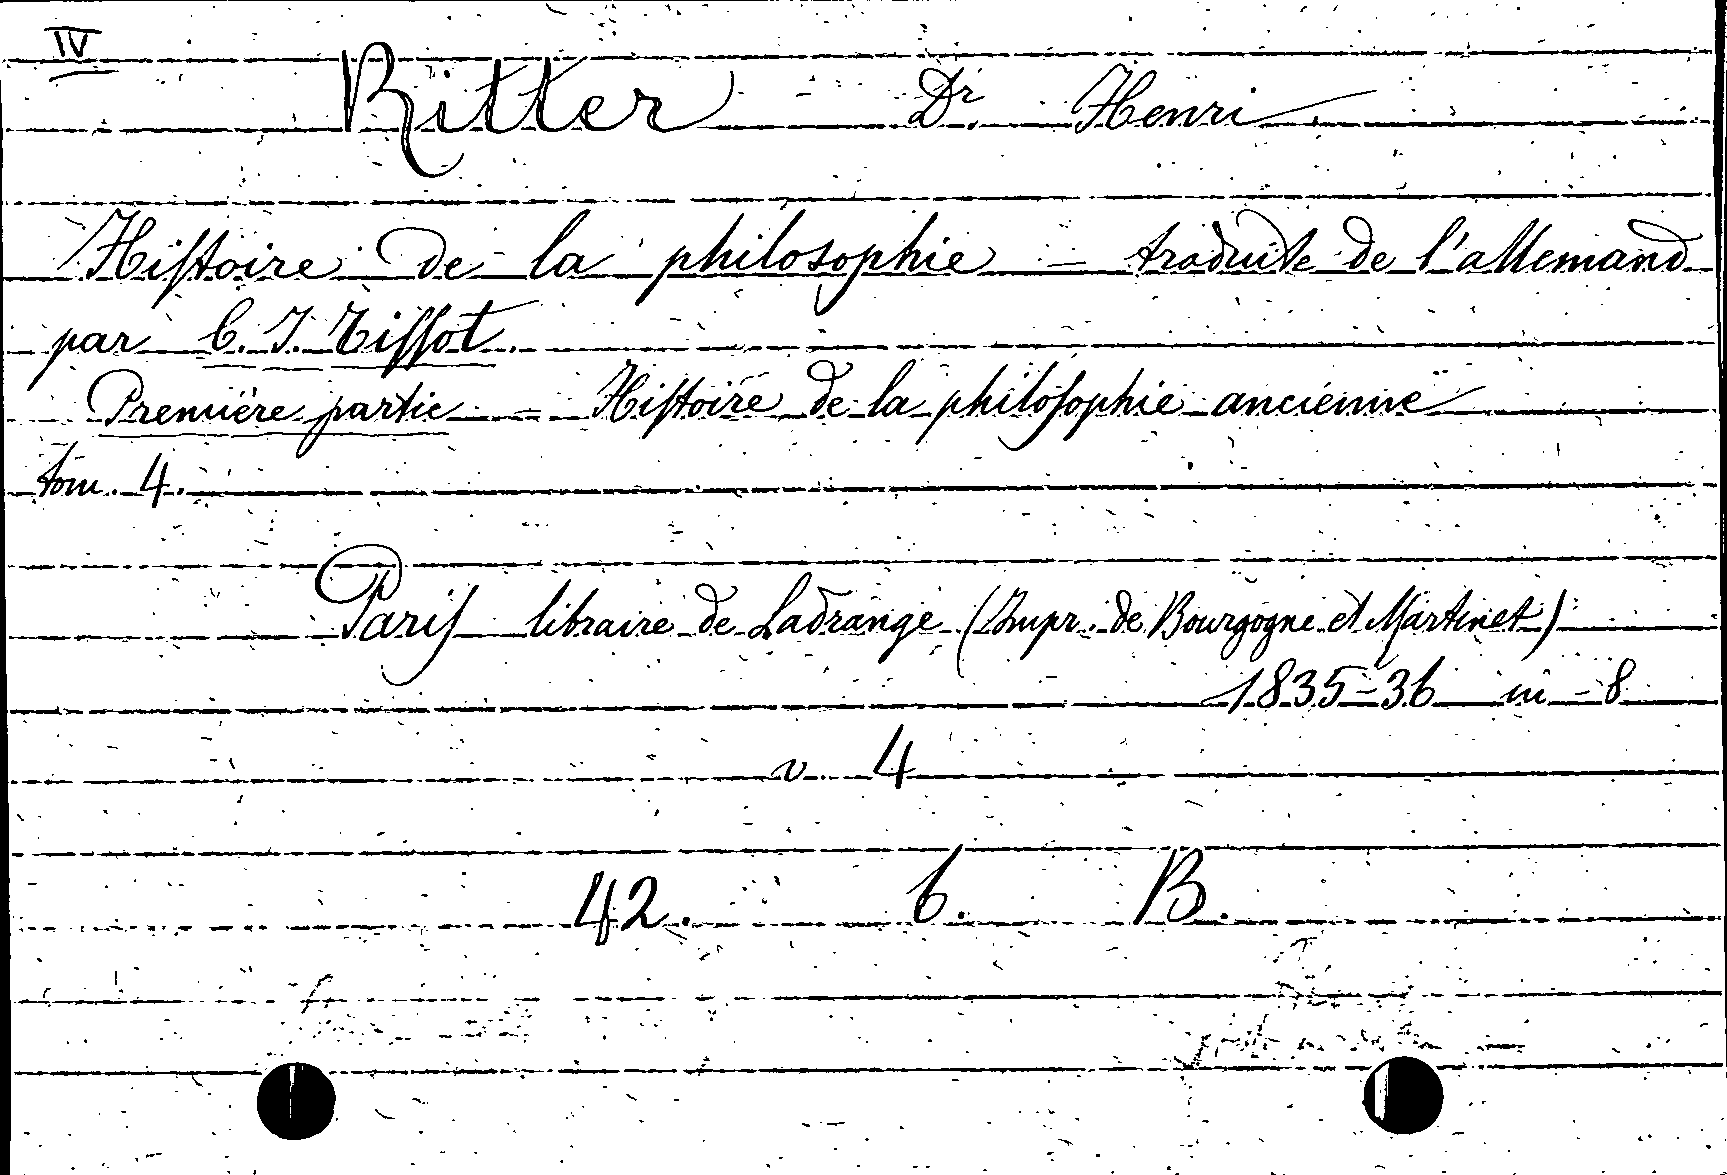 IV
Ritter Dr. Henri.
Histoire de la philosophie – traduite de l'allemand
par C. J. Tissot.
Première partie – Histoire de la philosophie ancienne
tom. 4.
Paris libraire de Ladrange (Impr. de Bourgogne et Martinet)
1835–36 in-8
v. 4
42. 6. B.